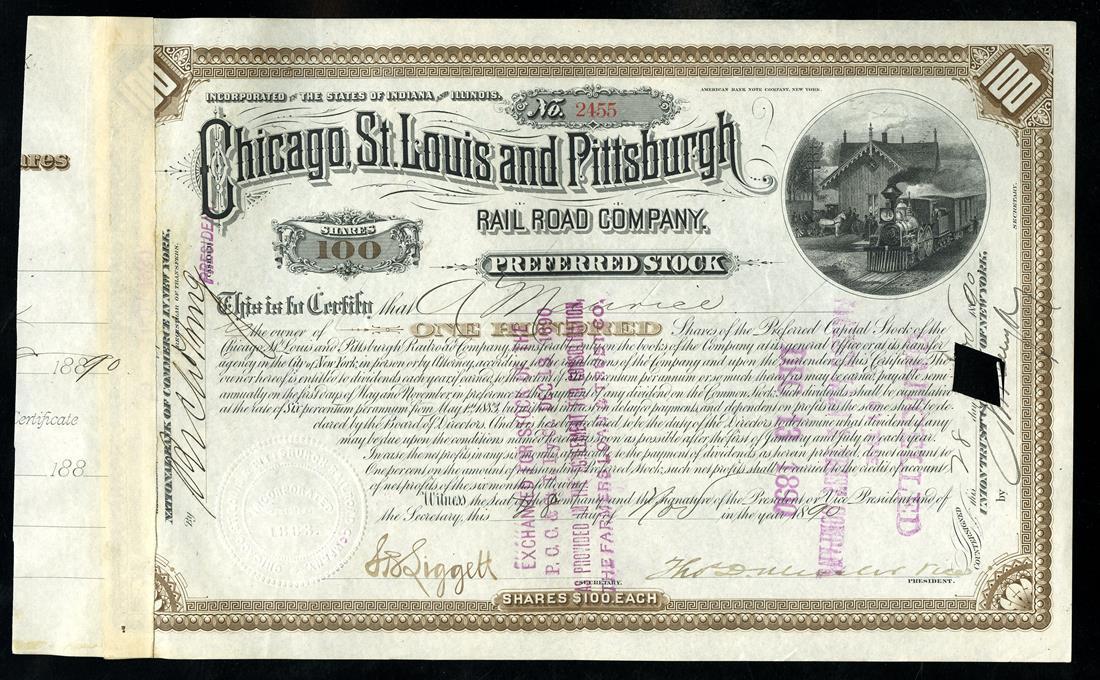 INCORPORATED IN THE STATES OF INDIANA AND ILLINOIS.
No. 2455
AMERICAN BANK NOTE COMPANY, NEW YORK.
100
100
Chicago, St. Louis and Pittsburgh
RAIL ROAD COMPANY.
SHARES
100
PREFERRED STOCK
This is to Certify that
is the owner of ONE HUNDRED Shares of the Preferred Capital Stock of the
Chicago, St. Louis and Pittsburgh Railroad Company, transferable on the books of the Company at its general Office or at its transfer
agency in the City of New York, in person or by Attorney, according to the regulations of the Company and upon the surrender of this Certificate. The
owner hereof is entitled to dividends each year if earned, to the extent of six per centum per annum or so much thereof as may be earned, payable semi
annually on the first days of May and November in preference to payment of any dividend on the Common Stock, such dividends shall be cumulative
at the rate of Six per centum per annum from May 1st 1883, without interest for delay of payments, and dependent on profits as the same shall be de-
clared by the Board of Directors. And it is hereby declared to be the duty of the Directors to determine what dividend if any
may be due upon the conditions named herein, as soon as possible after the first of January and July in each year.
In case the net profits in any six months applicable to the payment of dividends as herein provided, do not amount to
One per cent on the amount of outstanding Preferred Stock, such net profits shall be carried to the credit of account
of net profits of the six months following.
Witness the Seal of the Company and the Signature of the President or Vice President and of
the Secretary, this day of Nov in the year 1890
S B Liggett
SECRETARY.
PRESIDENT.
SHARES $100. EACH
NATIONAL BANK OF COMMERCE IN NEW YORK.
REGISTRAR OF TRANSFERS.
by
PRESIDENT
EXCHANGED FOR STOCK OF THE
P. C. C. & ST. L. RY. DEC 13 1890
AS PROVIDED IN THE AGREEMENT AND CONSOLIDATION,
THE FARMERS LOAN & TRUST CO.
DEC 13 1890
CANCELLED
COUNTERSIGNED this 28 day of 1890
UNION TRUST COMPANY OF NEW YORK,
by
SECRETARY.
ares
1890
Certificate
188